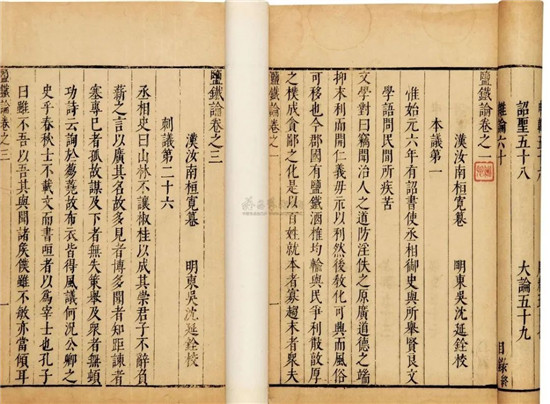 詔聖五十八 大論五十九
雜論六十 目錄終
鹽鐵論卷之一
漢汝南桓寬纂 明東吳沈延銓校
本議第一
惟始元六年有詔書使丞相御史與所舉賢良文
學語問民間所疾苦
文學對曰竊聞治人之道防淫佚之原廣道德之端
抑末利而開仁義毋示以利然後教化可興而風俗
可移也今郡國有鹽鐵酒榷均輸與民爭利散敦厚
之樸成貪鄙之化是以百姓就本者寡趨末者衆夫
鹽鐵論卷之一
鹽鐵論卷之三
漢汝南桓寬纂 明東吳沈延銓校
刺議第二十六
丞相史曰山林不讓椒桂以成其崇君子不辭負
薪之言以廣其名故多見者博多聞者知距諫者
塞專己者孤故謀及下者無失策舉及衆者無頓
功詩云詢於芻蕘故布衣皆得風議何況公卿之
史乎春秋士不載文而書咺者以爲宰士也孔子
曰雖不吾以吾其與聞諸侯僕雖不敏亦當傾耳
鹽鐵論卷之三